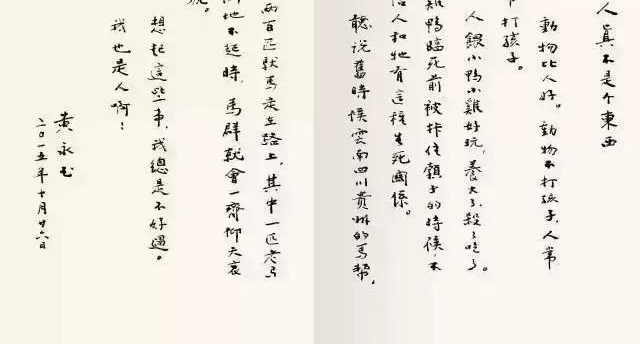 人真不是个東西
動物比人好。動物不打孩子,人常
打孩子。
人餵小鴨小雞好玩,養大了,殺了吃了。
鴨臨死前被拃住頸子的時候,不
信人和牠有這種生死關係。
聽說舊時候雲南四川貴州的馬幫,
兩百匹馱馬走在路上,其中一匹老了
倒地不起時,馬群就會一齊仰天哀
號。
想起這些事,我總是不好過。
我也是人啊!
黃永玉
二〇一五年十月廿六日